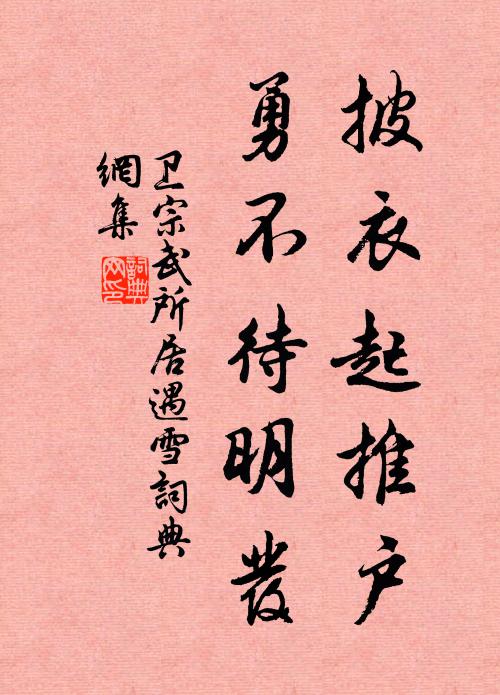 披衣起推户
勇不待明发
卫宗武所居遇雪詞典
網集
詞典網印